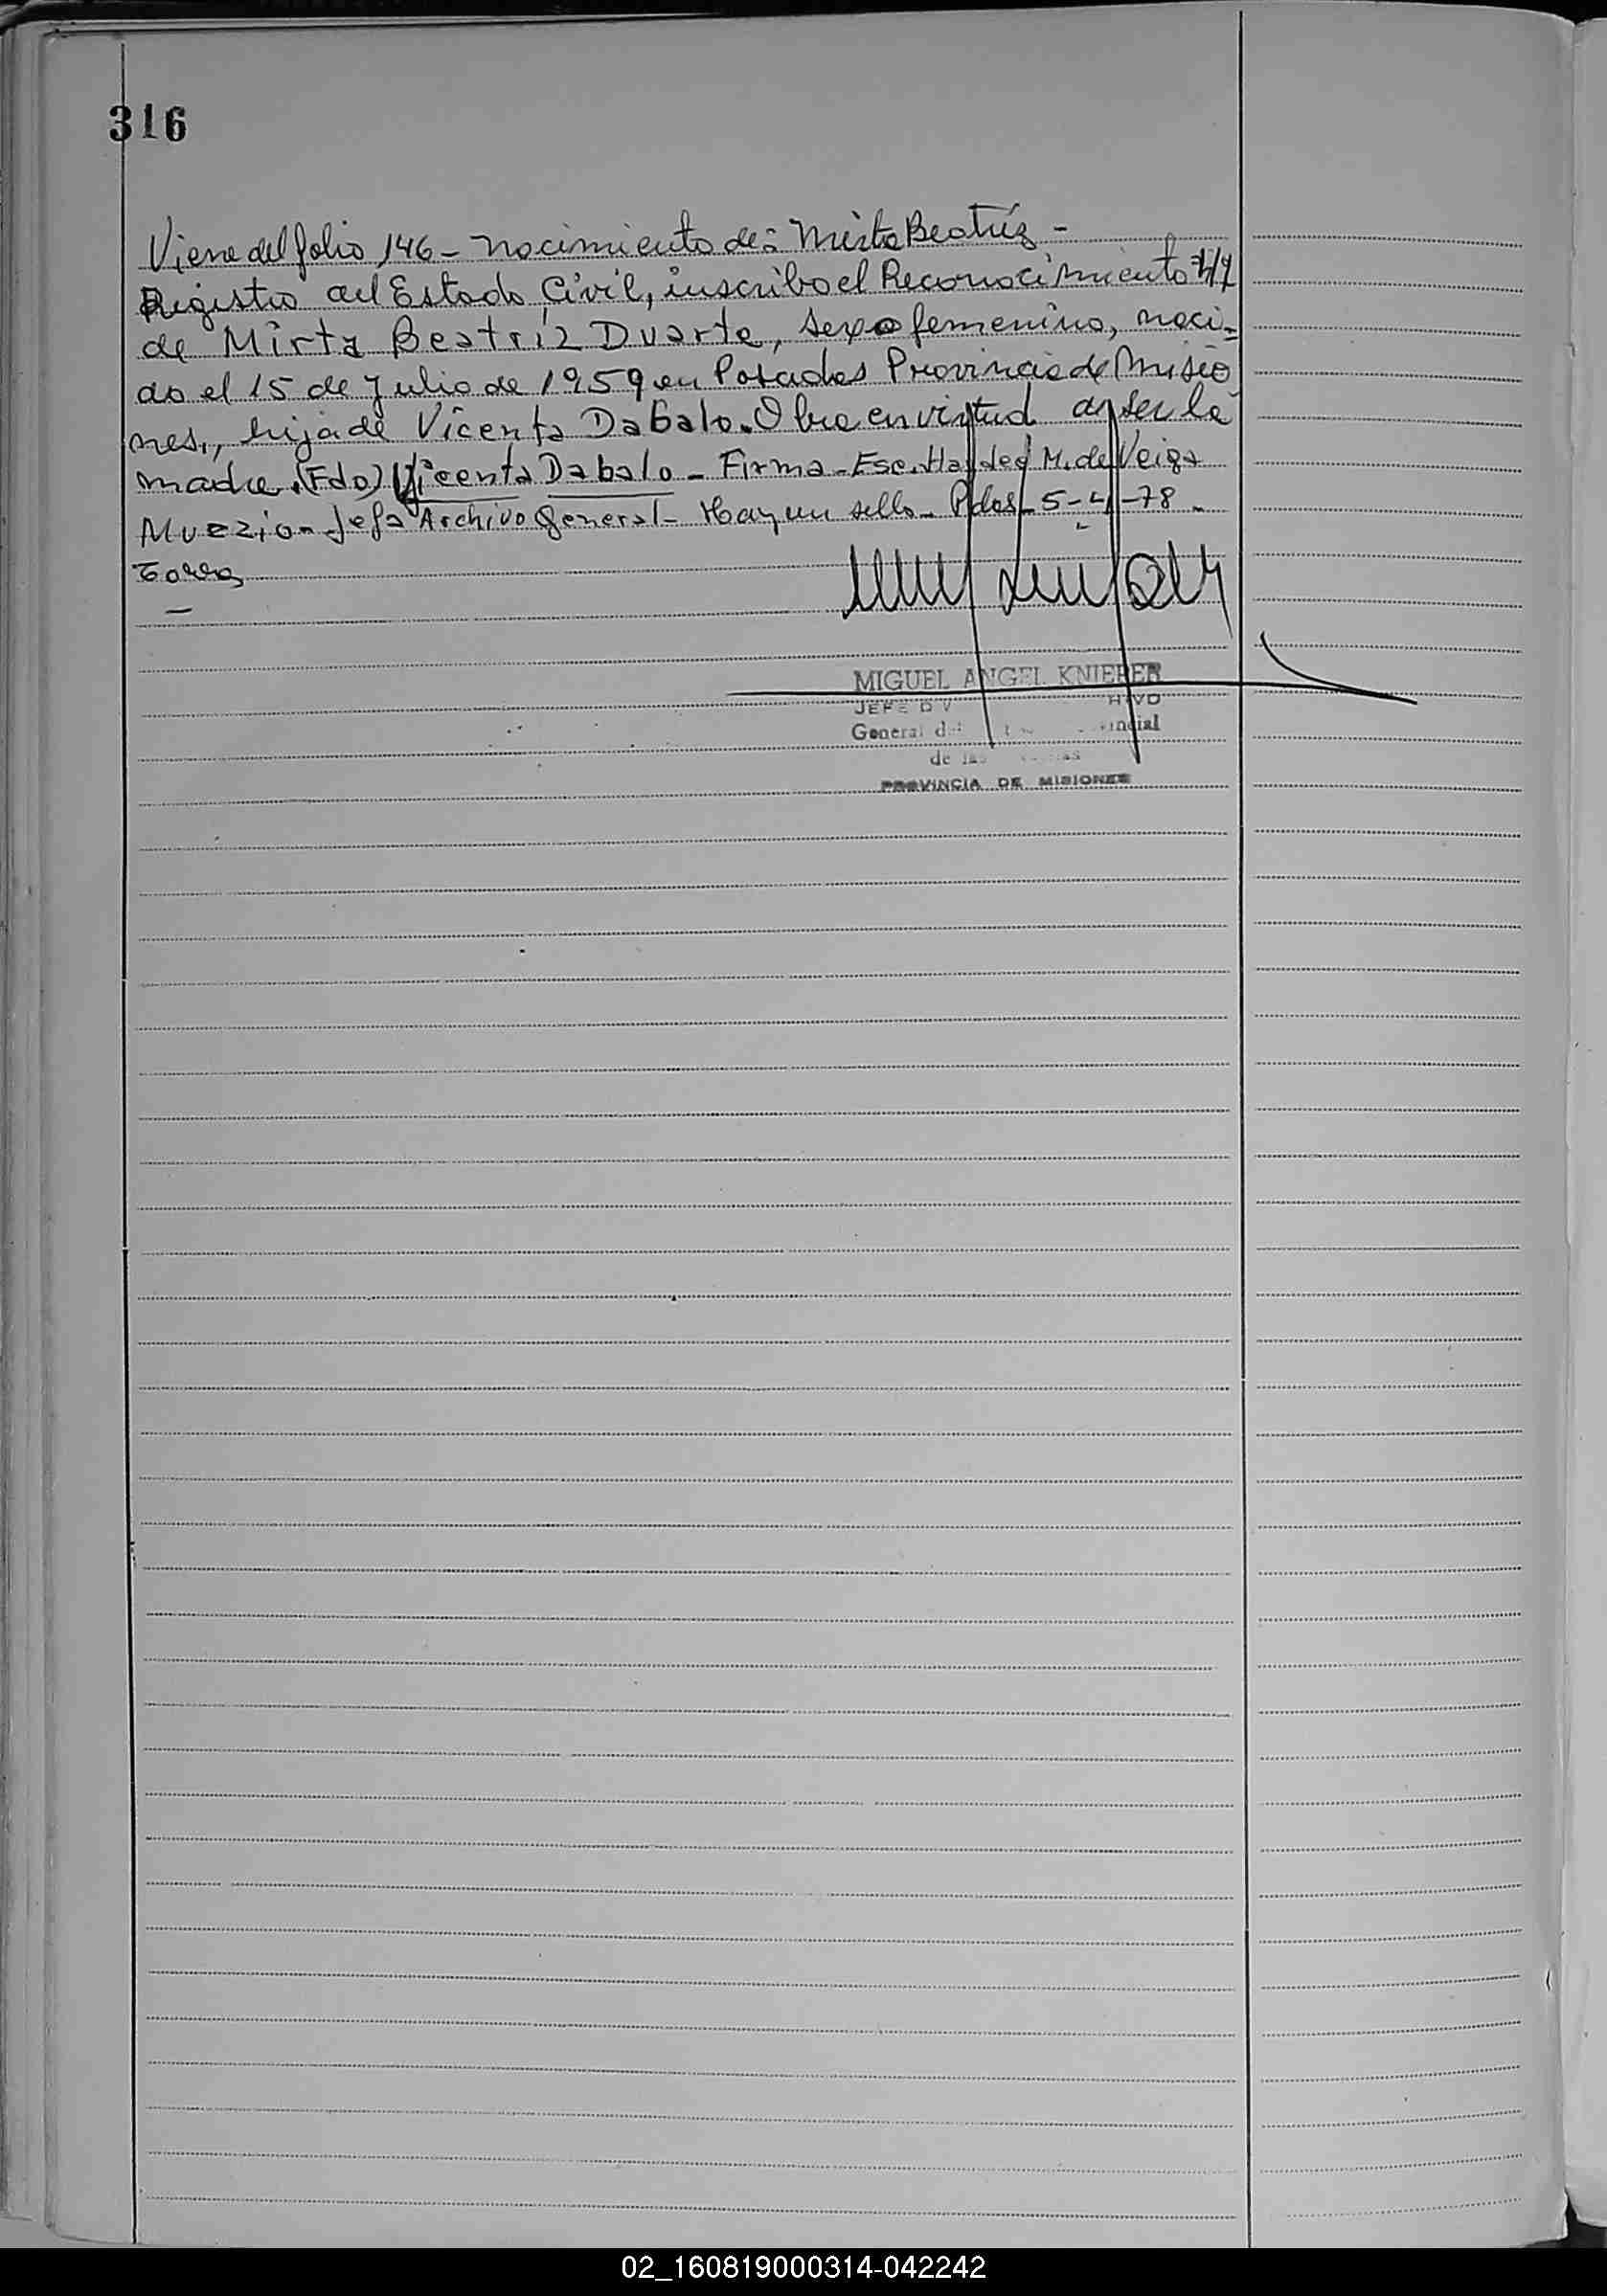 316
Viene del folio 146 - nacimiento de: Mirta Beatríz -
Registro del Estado Civil, inscribo el Reconocimiento
de Mirta Beatriz Duarte, sexo femenino, naci-
do el 15 de Julio de 1959 en Posadas Provincia de Misio
nes., hija de Vicenta Dabalo. Obra en virtud de ser la
madre. (Fdo) Vicenta Dabalo - Firma - Esc. Haydeé M. de Veiga
Muzzio - Jefa Archivo General - Hay un sello - Pdas - 5-4-78 -
MIGUEL ANGEL KNIEPER
JEFE
General
de las
PROVINCIA DE MISIONES
02_160819000314-042242